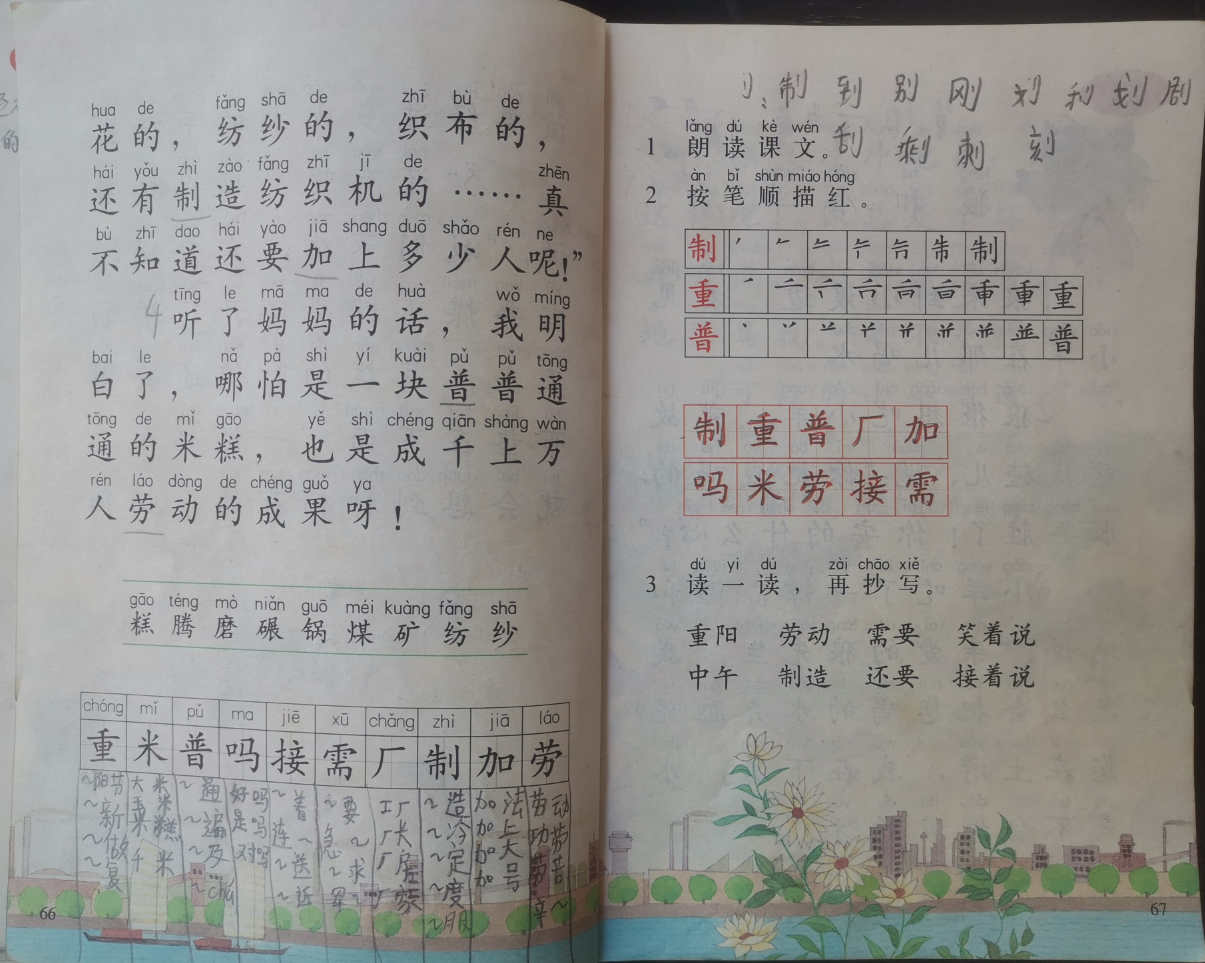 hua de fǎng shā de zhī bù de
花的，纺纱的，织布的，
hái yǒu zhì zào fǎng zhī jī de zhēn
还有制造纺织机的……真
bù zhī dao hái yào jiā shang duō shǎo rén ne
不知道还要加上多少人呢！”
tīng le mā ma de huà wǒ míng
4 听了妈妈的话，我明
bai le nǎ pà shì yí kuài pǔ pǔ tōng
白了，哪怕是一块普普通
tōng de mǐ gāo yě shì chéng qiān shàng wàn
通的米糕，也是成千上万
rén láo dòng de chéng guǒ ya
人劳动的成果呀！
gāo téng mò niǎn guō méi kuàng fǎng shā
糕 腾 磨 碾 锅 煤 矿 纺 纱
chóng mǐ pǔ ma jiē xū chǎng zhì jiā láo
重 米 普 吗 接 需 厂 制 加 劳
~阳节 大米 ~通 好吗 ~着 ~要 工厂 ~造 加法 劳动
~新 玉米 ~遍 是吗 连~ 急~ 厂长 ~冷 加上 功劳
~做 米糕 ~及 对吗 ~送 ~求 厂房 ~定 加大 劳苦
~复 千米 ~chá ~近 厂家 ~度 加号 辛~
~服
66
刂：制 到 别 刚 刘 利 划 剧
刮 剩 刺 刻
lǎng dú kè wén
1 朗读课文。
àn bǐ shùn miáo hóng
2 按笔顺描红。
制 制
重 重
普 普
制 重 普 厂 加
吗 米 劳 接 需
dú yi dú zài chāo xiě
3 读一读，再抄写。
重阳 劳动 需要 笑着说
中午 制造 还要 接着说
67